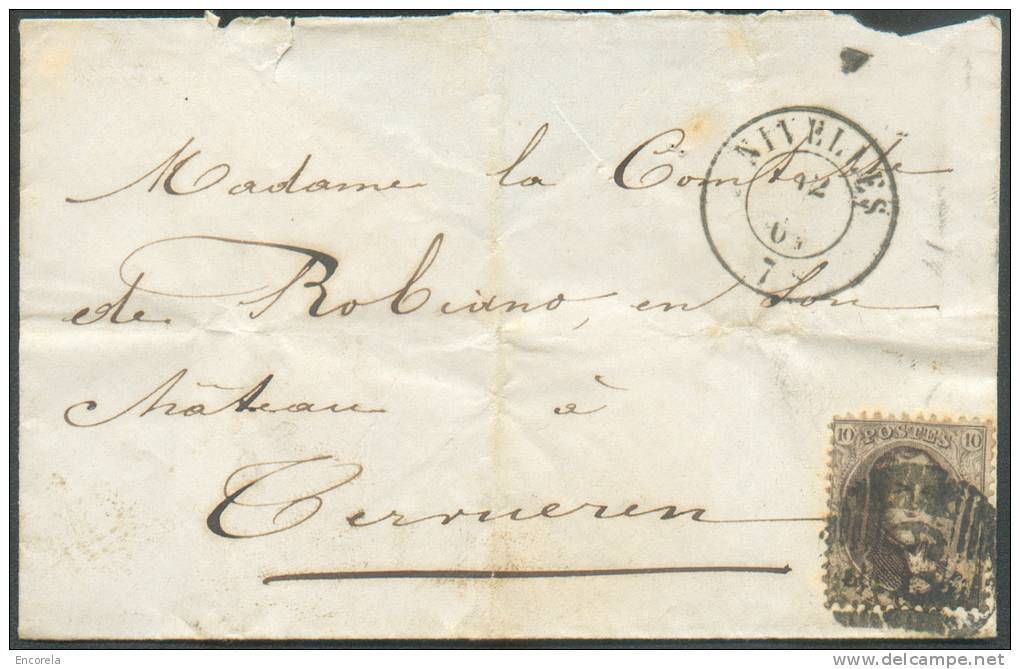 Madame la Comtesse
de Robiano, en son
château à
Tervueren
NIVELLES
12
7
10 POSTES 10
Encorela
www.delcampe.net